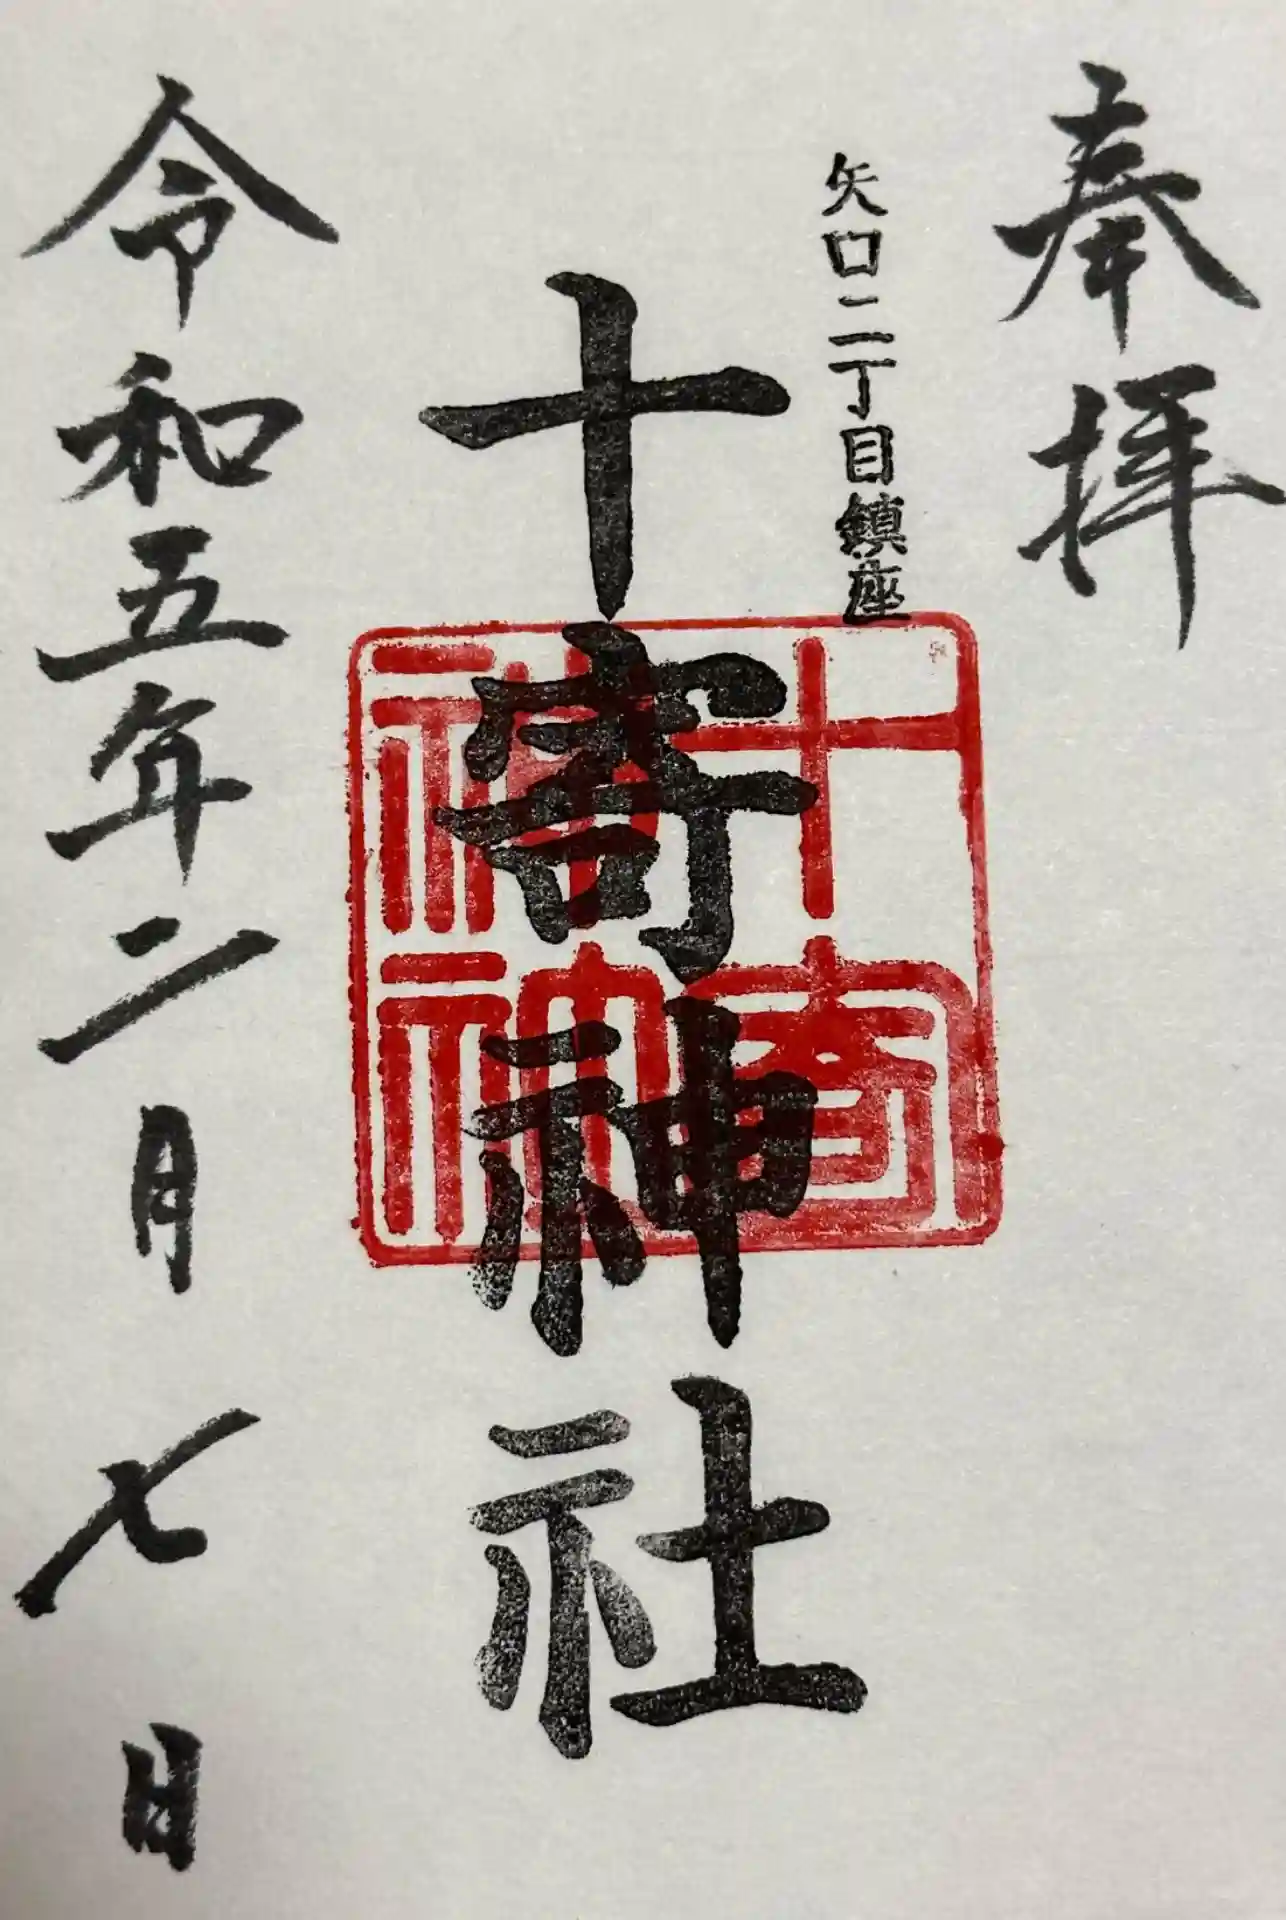 奉拝
矢口二丁目鎮座
十寄神社
令和五年二月七日